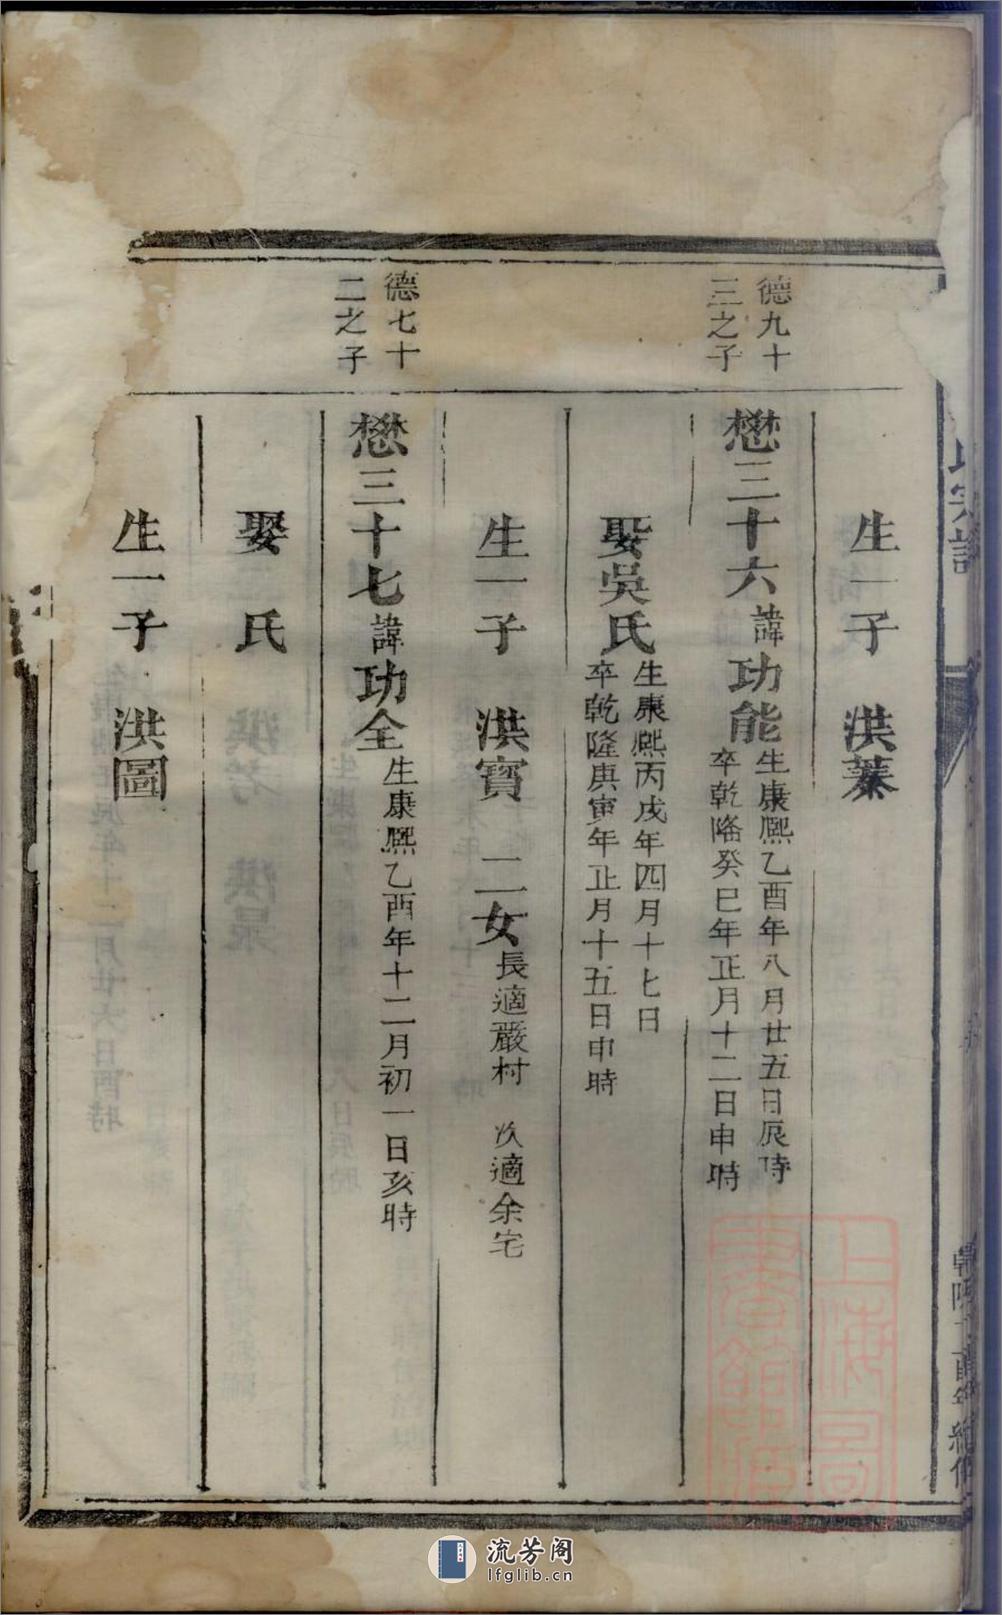 生一子　洪蓁
德九十
三之子
懋三十六諱功能
生康熙乙酉年八月廿五日辰時
卒乾隆癸巳年正月十二日申時
娶吳氏
生康熙丙戌年四月十七日
卒乾隆庚寅年正月十五日申時
生一子　洪寶　二女
長適嚴村　次適余宅
德七十
二之子
懋三十七諱功全
生康熙乙酉年十二月初一日亥時
娶　氏
生一子　洪圖
上海圖書館藏
流芳阁
lfglib.cn